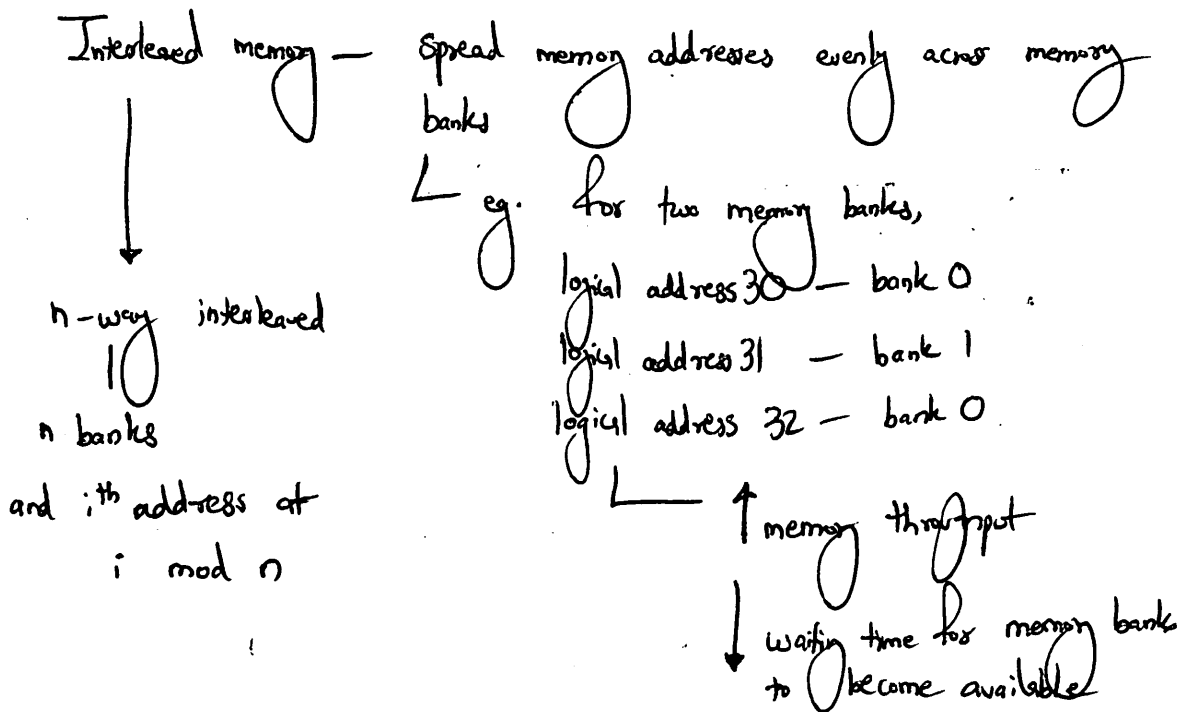 Interleaved memory — Spread memory addresses evenly across memory
banks
eg. for two memory banks,
logical address 30 — bank 0
logical address 31 — bank 1
logical address 32 — bank 0
↑ memory throughput
↓ waiting time for memory banks
to become available
n-way interleaved
n banks
and ith address at
i mod n